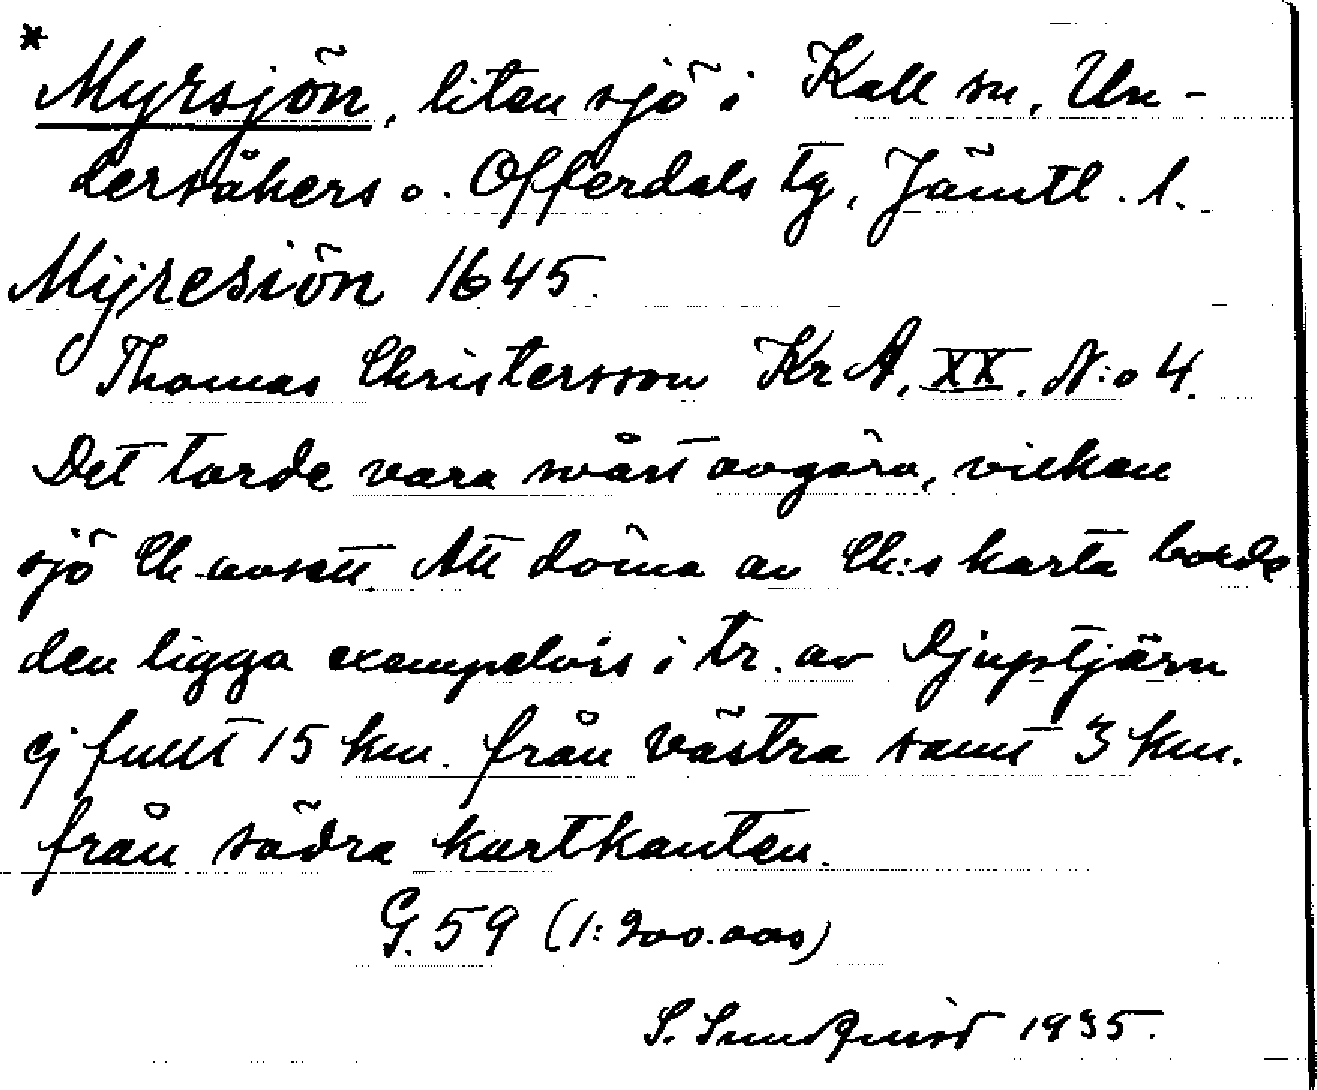 * Myrsjön, liten sjö i Kall sn, Un-
dersåkers o. Offerdals tg, Jämtl. l.
Mijresiön 1645.
Thomas Christersson KrA. XX. N:o 4.
Det torde vara svårt avgöra, vilken
sjö Ch avsett. Att döma av Ch:s karta borde
den ligga exempelvis i tr. av Djuptjärn
ej fullt 15 km. från västra samt 3 km.
från södra kartkanten.
G. 59 (1:200.000)
S. Sundquist 1935.